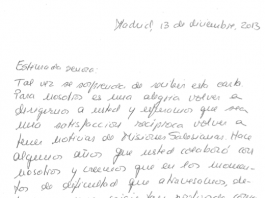 Madrid, 13 de diciembre, 2013
Estimado señor:
Tal vez se sorprenda de recibir esta carta
Para nosotros es una alegría volver a
dirigirnos a usted y esperamos que sea
una satisfacción recíproca volver a
tener noticias de Misiones Salesianas. Hace
algunos años que usted colaboró con
nosotros y creemos que en los momen-
tos de dificultad que atravesamos, de-